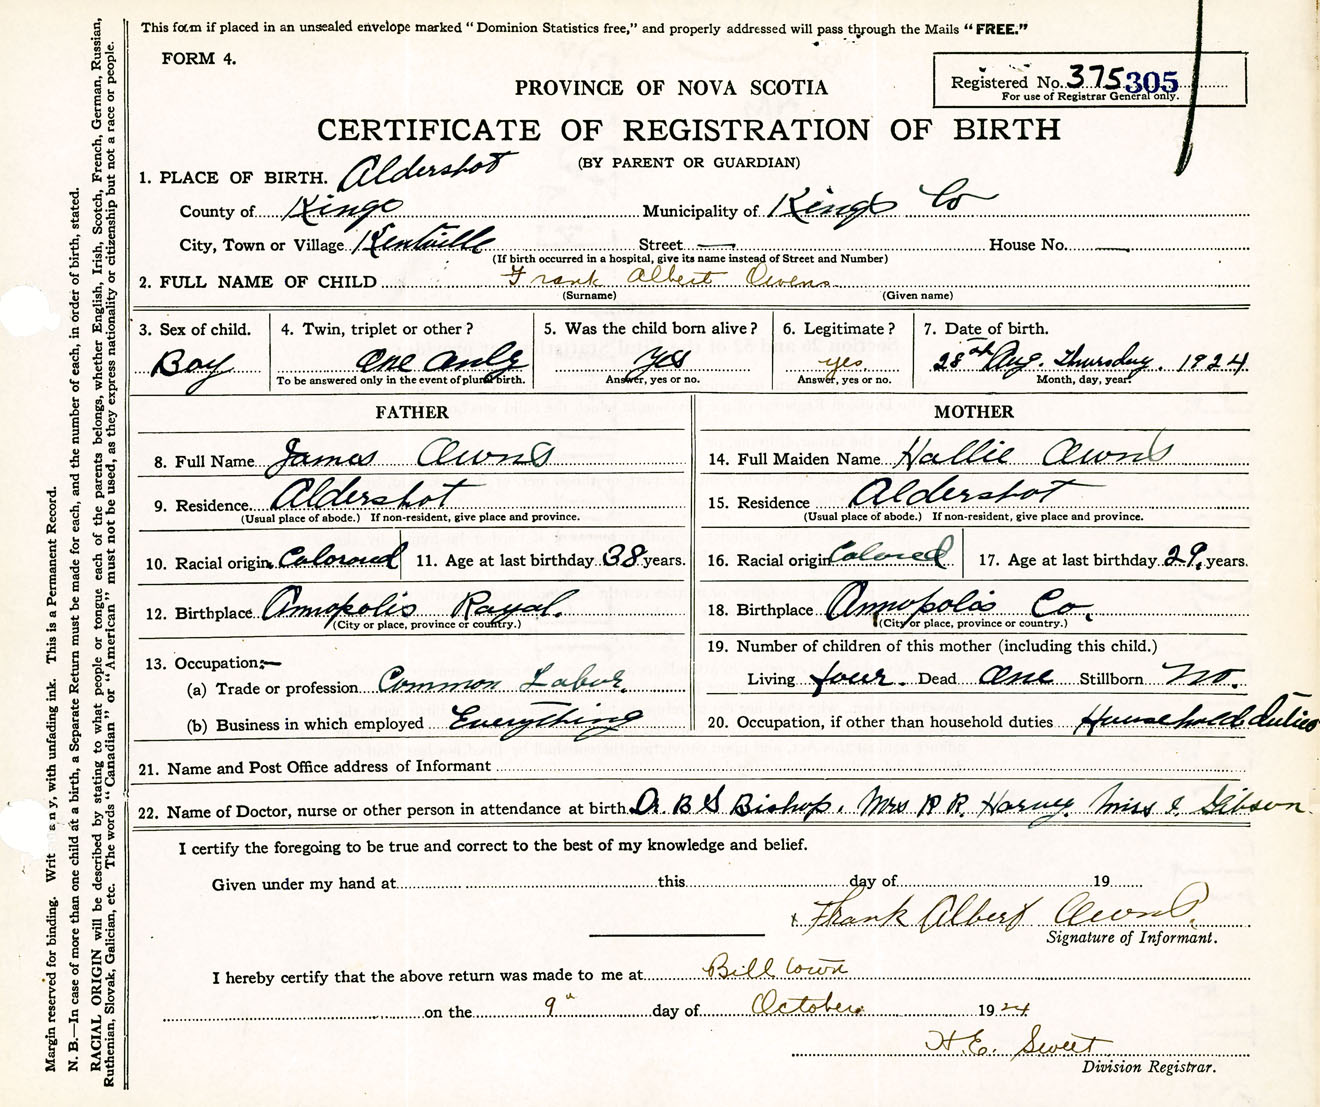 This form if placed in an unsealed envelope marked "Dominion Statistics free," and properly addressed will pass through the Mails "FREE."
FORM 4.
Registered No. 375 305
For use of Registrar General only.
PROVINCE OF NOVA SCOTIA
CERTIFICATE OF REGISTRATION OF BIRTH
(BY PARENT OR GUARDIAN)
1. PLACE OF BIRTH. Aldershot
County of Kings Municipality of Kings Co
City, Town or Village Kentville Street — House No. —
(If birth occurred in a hospital, give its name instead of Street and Number)
2. FULL NAME OF CHILD Frank Albert Owens
(Surname) (Given name)
3. Sex of child. 4. Twin, triplet or other? 5. Was the child born alive? 6. Legitimate? 7. Date of birth.
Boy One only Yes yes 28th Aug. Thursday. 1924
To be answered only in the event of plural birth. Answer, yes or no. Answer, yes or no. Month, day, year.
FATHER MOTHER
8. Full Name James Owns 14. Full Maiden Name Hallie Owns
9. Residence Aldershot 15. Residence Aldershot
(Usual place of abode.) If non-resident, give place and province. (Usual place of abode.) If non-resident, give place and province.
10. Racial origin Colored 11. Age at last birthday 38 years. 16. Racial origin Colored 17. Age at last birthday 29. years.
12. Birthplace Annopolis Royal. 18. Birthplace Annopolis Co.
(City or place, province or country.) (City or place, province or country.)
19. Number of children of this mother (including this child.)
13. Occupation:—
(a) Trade or profession Common Labor. Living four. Dead One Stillborn No.
(b) Business in which employed Everything 20. Occupation, if other than household duties Household duties
21. Name and Post Office address of Informant
22. Name of Doctor, nurse or other person in attendance at birth Dr. B S Bishop. Mrs R R. Harvey. Miss I. Gibson.
I certify the foregoing to be true and correct to the best of my knowledge and belief.
Given under my hand at this day of 19
x Frank Albert Owns.
Signature of Informant.
I hereby certify that the above return was made to me at Bill town
on the 9" day of October. 1924
H. E. Sweet
Division Registrar.
Margin reserved for binding. Writ any, with unfading ink. This is a Permanent Record.
N. B.—In case of more than one child at a birth, a Separate Return must be made for each, and the number of each, in order of birth, stated.
RACIAL ORIGIN will be described by stating to what people or tongue each of the parents belongs, whether English, Irish, Scotch, French, German, Russian,
Ruthenian, Slovak, Galician, etc. The words "Canadian" or "American" must not be used, as they express nationality or citizenship but not a race or people.